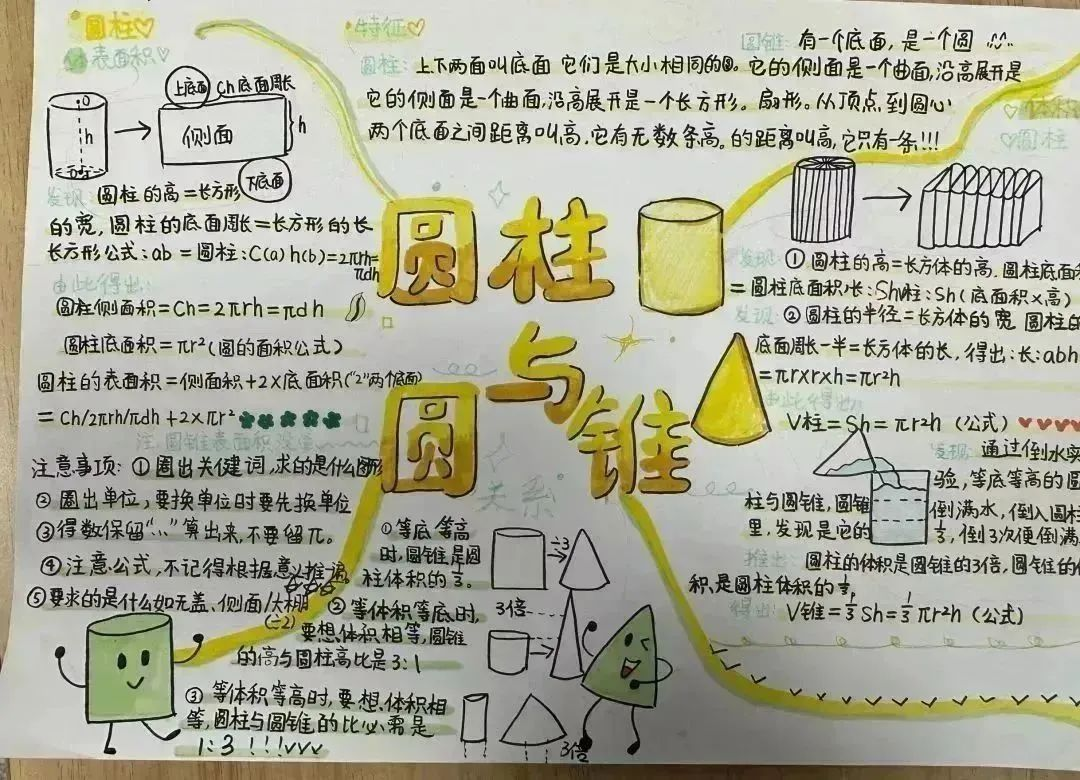 圆柱
表面积
上底面 Ch底面周长
侧面
h
h
下底面
发现:圆柱的高=长方形
的宽,圆柱的底面周长=长方形的长
长方形公式:ab=圆柱:C(a)h(b)=2πrh=
πdh
由此得出:
圆柱侧面积=Ch=2πrh=πdh
圆柱底面积=πr²(圆的面积公式)
圆柱的表面积=侧面积+2×底面积("2"两个底面)
=Ch/2πrh/πdh+2×πr²
注:圆锥表面积没
注意事项:①圈出关键词,求的是什么图形
②圈出单位,要换单位时要先换单位
③得数保留"..."算出来,不要留π。
④注意公式,不记得根据意义推
⑤要求的是什么如无盖、侧面/大棚
(÷2)
特征
圆柱:上下两面叫底面 它们是大小相同的圆。
它的侧面是一个曲面,沿高展开是一个长方形。
两个底面之间距离叫高,它有无数条高。
圆锥:有一个底面,是一个圆
它的侧面是一个曲面,沿高展开是
扇形。从顶点到圆心
的距离叫高,它只有一条!!!
圆柱
与
圆锥
体积
圆柱
发现:①圆柱的高=长方体的高.圆柱底面积
=圆柱底面积 长:Sh 柱:Sh(底面积×高)
发现:②圆柱的半径=长方体的宽 圆柱的
底面周长一半=长方体的长,得出:长:abh
=πr×r×h=πr²h
由此得出:
V柱=Sh=πr²h(公式)
发现:通过倒水实
验,等底等高的圆
柱与圆锥,圆锥
倒满水,倒入圆柱
里,发现是它的
1/3,倒3次便倒满
推出:圆柱的体积是圆锥的3倍,圆锥的体
积是圆柱体积的1/3
得出:V锥=1/3Sh=1/3πr²h(公式)
关系
①等底等高
时,圆锥是圆
柱体积的1/3。
÷3
②等体积等底时,
要想体积相等,圆锥
的高与圆柱高比是3:1
3倍
③等体积等高时,要想体积相
等,圆柱与圆锥的比必需是
1:3!!!vvv
3倍